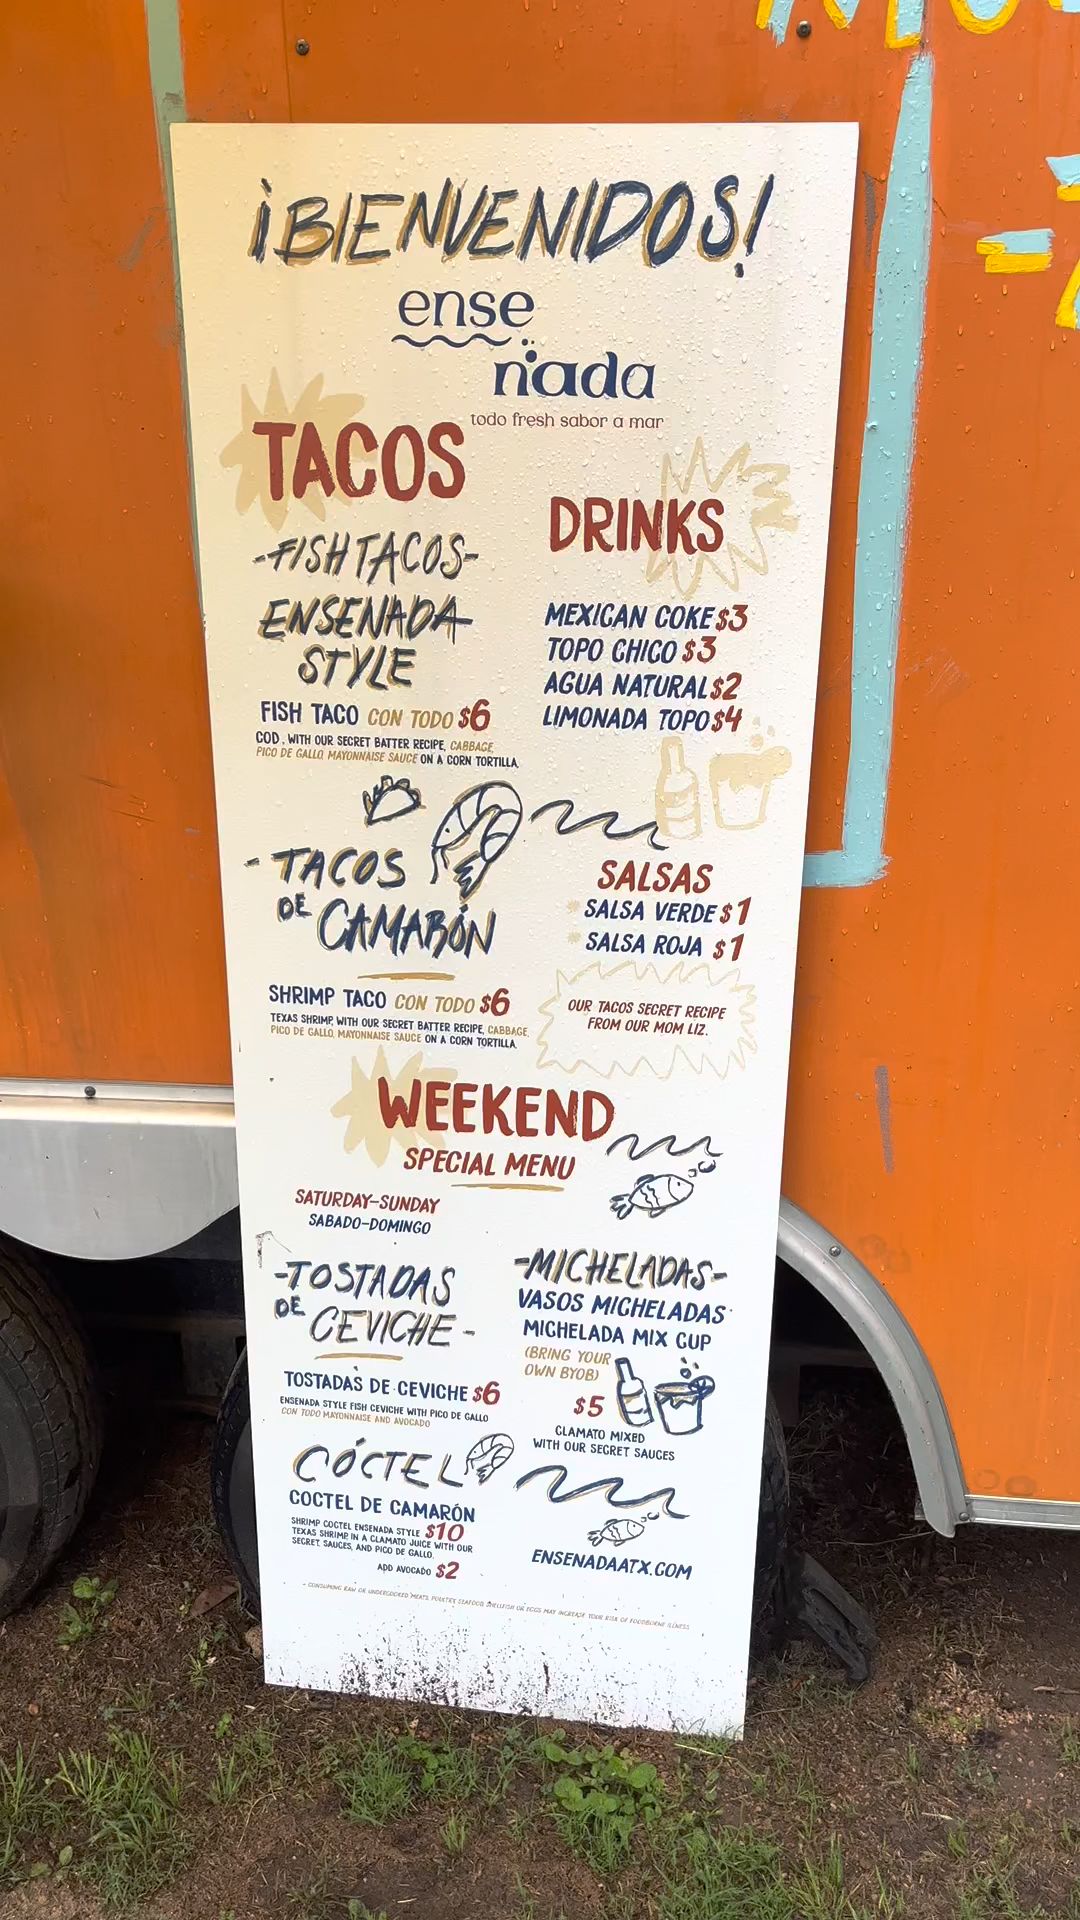 ¡BIENVENIDOS!
ense
ñada
todo fresh sabor a mar
TACOS
-FISH TACOS-
ENSENADA
STYLE
FISH TACO CON TODO $6
COD, WITH OUR SECRET BATTER RECIPE, CABBAGE,
PICO DE GALLO, MAYONNAISE SAUCE ON A CORN TORTILLA.
- TACOS
DE CAMARÓN
SHRIMP TACO CON TODO $6
TEXAS SHRIMP, WITH OUR SECRET BATTER RECIPE, CABBAGE,
PICO DE GALLO, MAYONNAISE SAUCE ON A CORN TORTILLA.
DRINKS
MEXICAN COKE $3
TOPO CHICO $3
AGUA NATURAL $2
LIMONADA TOPO $4
SALSAS
SALSA VERDE $1
SALSA ROJA $1
OUR TACOS SECRET RECIPE
FROM OUR MOM LIZ.
WEEKEND
SPECIAL MENU
SATURDAY-SUNDAY
SABADO-DOMINGO
-TOSTADAS
DE CEVICHE-
TOSTADAS DE CEVICHE $6
ENSENADA STYLE FISH CEVICHE WITH PICO DE GALLO
CON TODO MAYONNAISE AND AVOCADO
CÓCTEL
COCTEL DE CAMARÓN
SHRIMP COCTEL ENSENADA STYLE $10
TEXAS SHRIMP IN A CLAMATO JUICE WITH OUR
SECRET SAUCES, AND PICO DE GALLO.
ADD AVOCADO $2
-MICHELADAS-
VASOS MICHELADAS
MICHELADA MIX CUP
(BRING YOUR
OWN BYOB)
$5
CLAMATO MIXED
WITH OUR SECRET SAUCES
ENSENADAATX.COM
- CONSUMING RAW OR UNDERCOOKED MEATS, POULTRY, SEAFOOD, SHELLFISH OR EGGS MAY INCREASE YOUR RISK OF FOODBORNE ILLNESS